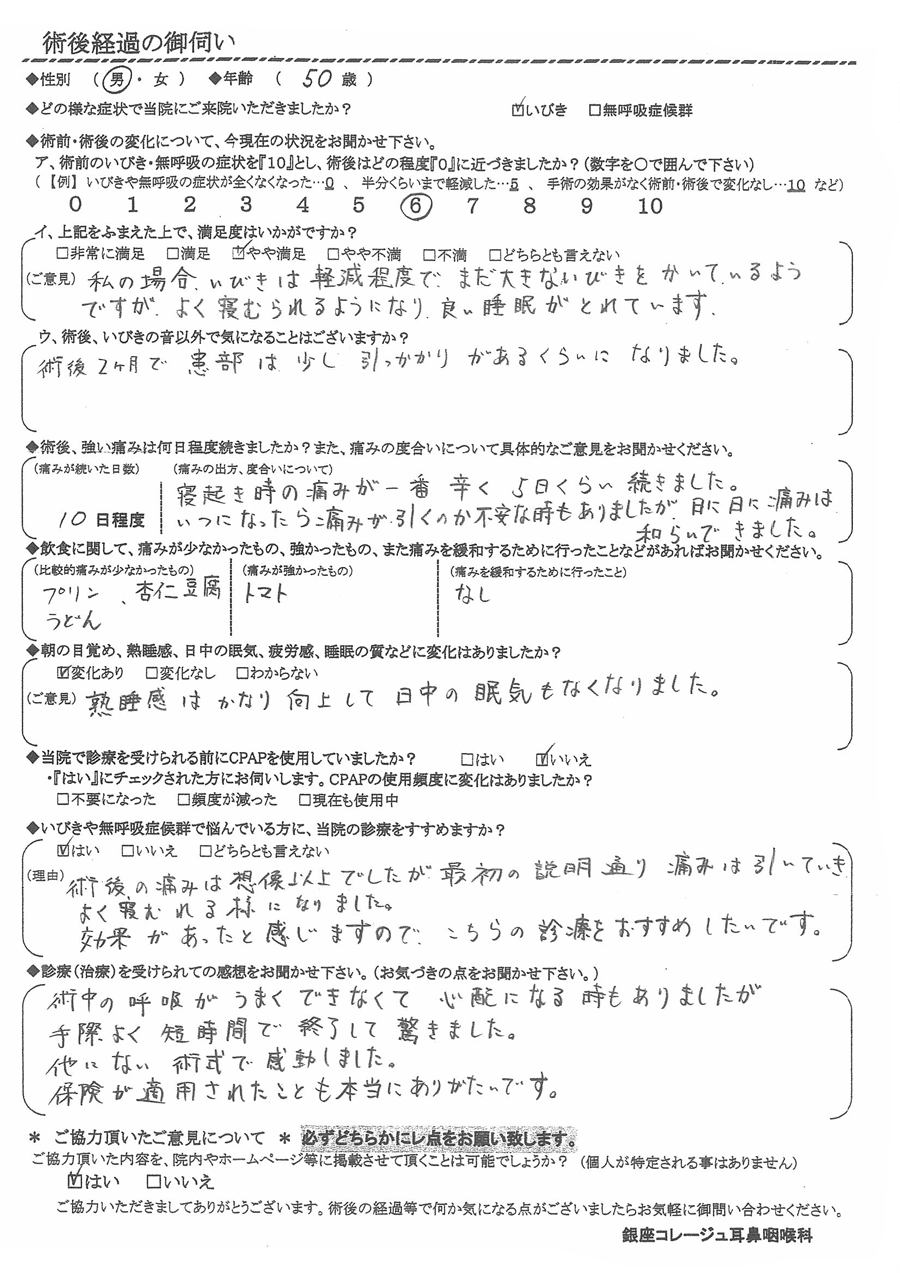 術後経過の御伺い
◆性別 (男・女) ◆年齢 (50歳)
◆どの様な症状で当院にご来院いただきましたか? ☑いびき □無呼吸症候群
◆術前・術後の変化について、今現在の状況をお聞かせ下さい。
ア、術前のいびき・無呼吸の症状を『10』とし、術後はどの程度『0』に近づきましたか?(数字を○で囲んで下さい)
(【例】いびきや無呼吸の症状が全くなくなった…0、半分くらいまで軽減した…5、手術の効果がなく術前・術後で変化なし…10 など)
0 1 2 3 4 5 6 7 8 9 10
イ、上記をふまえた上で、満足度はいかがですか?
□非常に満足 □満足 ☑やや満足 □やや不満 □不満 □どちらとも言えない
(ご意見) 私の場合、いびきは軽減程度で、まだ大きないびきをかいているよう
ですが、よく寝むられるようになり、良い睡眠がとれています.
ウ、術後、いびきの音以外で気になることはございますか?
術後2ヶ月で患部は少し引っかかりがあるくらいになりました。
◆術後、強い痛みは何日程度続きましたか?また、痛みの度合いについて具体的なご意見をお聞かせください。
(痛みが続いた日数) (痛みの出方、度合いについて)
寝起き時の痛みが一番辛く5日くらい続きました。
10日程度 いつになったら痛みが引くのか不安な時もありましたが日に日に痛みは
和らいできました。
◆飲食に関して、痛みが少なかったもの、強かったもの、また痛みを緩和するために行ったことなどがあればお聞かせください。
(比較的痛みが少なかったもの) (痛みが強かったもの) (痛みを緩和するために行ったこと)
プリン、杏仁豆腐 トマト なし
うどん
◆朝の目覚め、熟睡感、日中の眠気、疲労感、睡眠の質などに変化はありましたか?
☑変化あり □変化なし □わからない
(ご意見) 熟睡感はかなり向上して日中の眠気もなくなりました。
◆当院で診療を受けられる前にCPAPを使用していましたか? □はい ☑いいえ
・『はい』にチェックされた方にお伺いします。CPAPの使用頻度に変化はありましたか?
□不要になった □頻度が減った □現在も使用中
◆いびきや無呼吸症候群で悩んでいる方に、当院の診療をすすめますか?
☑はい □いいえ □どちらとも言えない
(理由) 術後の痛みは想像以上でしたが最初の説明通り痛みは引いていき
よく寝むれる様になりました。
効果があったと感じますので、こちらの診療をおすすめしたいです。
◆診療(治療)を受けられての感想をお聞かせ下さい。(お気づきの点をお聞かせ下さい。)
術中の呼吸がうまくできなくて心配になる時もありましたが
手際よく短時間で終了して驚きました。
他にない術式で感動しました。
保険が適用されたことも本当にありがたいです。
* ご協力頂いたご意見について * 必ずどちらかにレ点をお願い致します。
ご協力頂いた内容を、院内やホームページ等に掲載させて頂くことは可能でしょうか?(個人が特定される事はありません)
☑はい □いいえ
ご協力いただきましてありがとうございます。術後の経過等で何か気になる点がございましたらお気軽に御問い合わせください。
銀座コレージュ耳鼻咽喉科